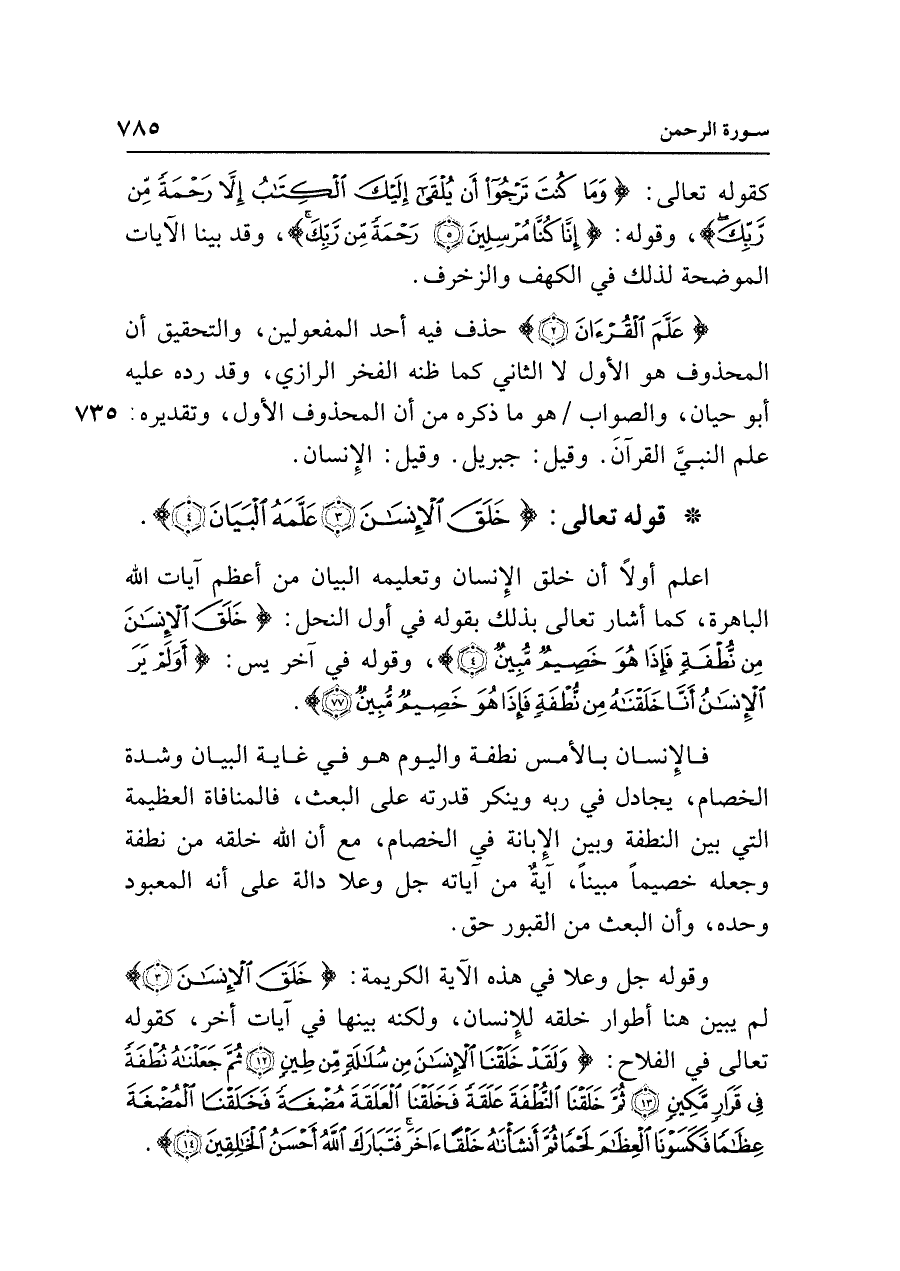 سورة الرحمن ٧٨٥
كقوله تعالى: ﴿ وَمَا كُنتَ تَرْجُوٓاْ أَن يُلْقَىٰٓ إِلَيْكَ ٱلْكِتَٰبُ إِلَّا رَحْمَةً مِّن
رَّبِّكَۖ﴾، وقوله: ﴿ إِنَّا كُنَّا مُرْسِلِينَ ۝٥ رَحْمَةً مِّن رَّبِّكَۚ﴾، وقد بينا الآيات
الموضحة لذلك في الكهف والزخرف.
﴿ عَلَّمَ ٱلْقُرْءَانَ ۝٢﴾ حذف فيه أحد المفعولين، والتحقيق أن
المحذوف هو الأول لا الثاني كما ظنه الفخر الرازي، وقد رده عليه
أبو حيان، والصواب / هو ما ذكره من أن المحذوف الأول، وتقديره: ٧٣٥
علم النبيَّ القرآنَ. وقيل: جبريل. وقيل: الإنسان.
* قوله تعالى: ﴿ خَلَقَ ٱلْإِنسَٰنَ ۝٣ عَلَّمَهُ ٱلْبَيَانَ ۝٤﴾.
اعلم أولاً أن خلق الإنسان وتعليمه البيان من أعظم آيات الله
الباهرة، كما أشار تعالى بذلك بقوله في أول النحل: ﴿ خَلَقَ ٱلْإِنسَٰنَ
مِن نُّطْفَةٍ فَإِذَا هُوَ خَصِيمٌ مُّبِينٌ ۝٤﴾، وقوله في آخر يس: ﴿ أَوَلَمْ يَرَ
ٱلْإِنسَٰنُ أَنَّا خَلَقْنَٰهُ مِن نُّطْفَةٍ فَإِذَا هُوَ خَصِيمٌ مُّبِينٌ ۝٧٧﴾.
فالإنسان بالأمس نطفة واليوم هو في غاية البيان وشدة
الخصام، يجادل في ربه وينكر قدرته على البعث، فالمنافاة العظيمة
التي بين النطفة وبين الإبانة في الخصام، مع أن الله خلقه من نطفة
وجعله خصيماً مبيناً، آيةٌ من آياته جل وعلا دالة على أنه المعبود
وحده، وأن البعث من القبور حق.
وقوله جل وعلا في هذه الآية الكريمة: ﴿ خَلَقَ ٱلْإِنسَٰنَ ۝٣﴾
لم يبين هنا أطوار خلقه للإنسان، ولكنه بينها في آيات أخر، كقوله
تعالى في الفلاح: ﴿ وَلَقَدْ خَلَقْنَا ٱلْإِنسَٰنَ مِن سُلَٰلَةٍ مِّن طِينٍ ۝١٢ ثُمَّ جَعَلْنَٰهُ نُطْفَةً
فِى قَرَارٍ مَّكِينٍ ۝١٣ ثُمَّ خَلَقْنَا ٱلنُّطْفَةَ عَلَقَةً فَخَلَقْنَا ٱلْعَلَقَةَ مُضْغَةً فَخَلَقْنَا ٱلْمُضْغَةَ
عِظَٰمًا فَكَسَوْنَا ٱلْعِظَٰمَ لَحْمًا ثُمَّ أَنشَأْنَٰهُ خَلْقًا ءَاخَرَۚ فَتَبَارَكَ ٱللَّهُ أَحْسَنُ ٱلْخَٰلِقِينَ ۝١٤﴾.